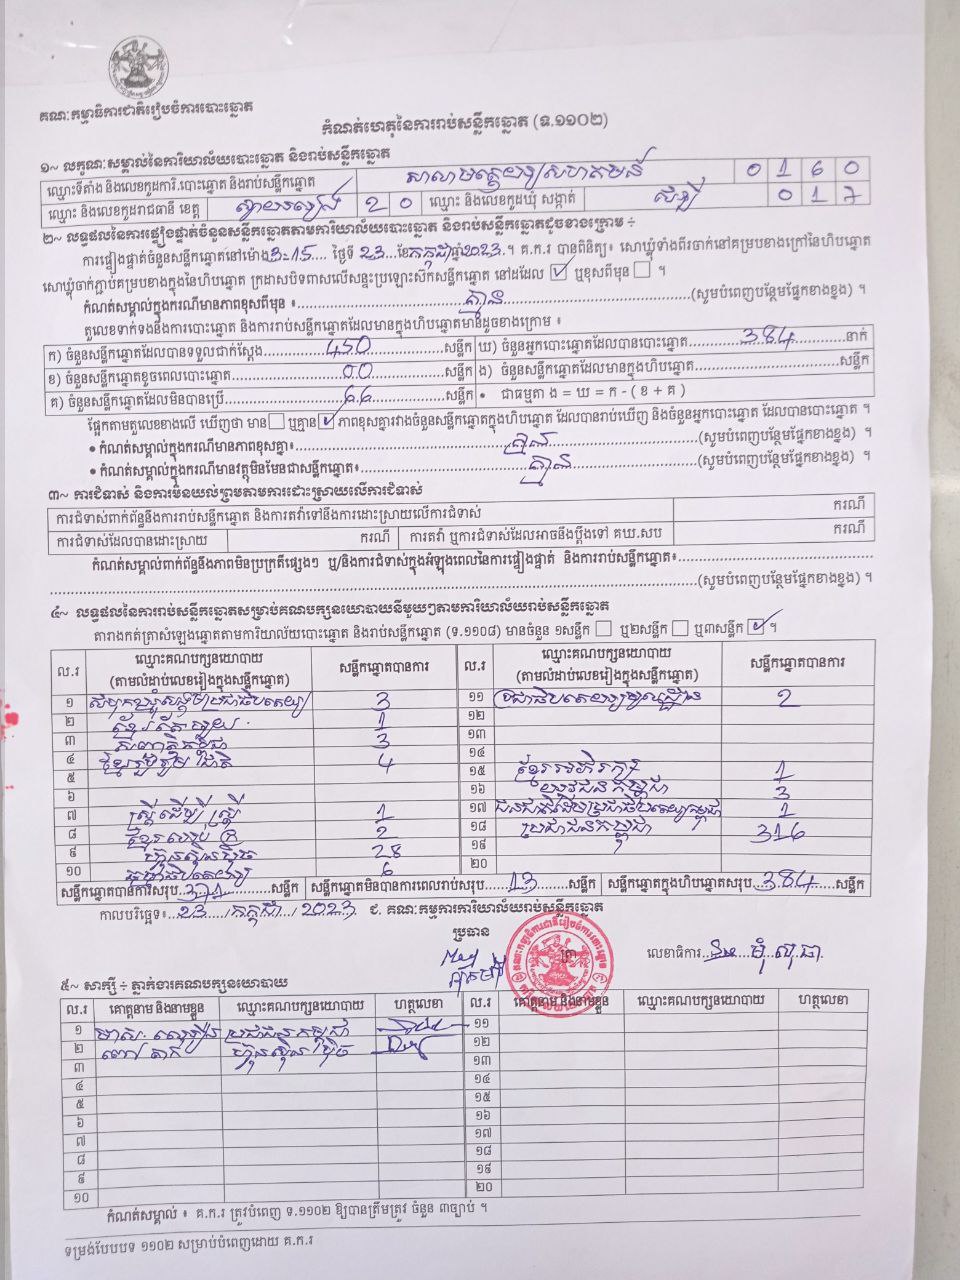 គណៈកម្មាធិការជាតិរៀបចំការបោះឆ្នោត
កំណត់ហេតុនៃការរាប់សន្លឹកឆ្នោត (ទ.១១០២)
១~ លក្ខណៈសម្គាល់នៃការិយាល័យបោះឆ្នោត និងរាប់សន្លឹកឆ្នោត
ឈ្មោះទីតាំង និងលេខកូដការិ.បោះឆ្នោត និងរាប់សន្លឹកឆ្នោត សាលាមត្តេយ្យសហគមន៍ 0 1 6 0
ឈ្មោះ និងលេខកូដរាជធានី ខេត្ត ស្វាយរៀង 2 0 ឈ្មោះ និងលេខកូដឃុំ សង្កាត់ 0 1 7
២~ លទ្ធផលនៃការផ្ទៀងផ្ទាត់ចំនួនសន្លឹកឆ្នោតតាមការិយាល័យបោះឆ្នោត និងរាប់សន្លឹកឆ្នោតដូចខាងក្រោម ÷
ការផ្ទៀងផ្ទាត់ចំនួនសន្លឹកឆ្នោតនៅម៉ោង 3:15 ថ្ងៃទី 23 ខែកក្កដាឆ្នាំ2023 ។ គ.ក.រ បានពិនិត្យ៖ សោឃ្លុំទាំងពីរចាក់នៅគម្របខាងក្រៅនៃហិបឆ្នោត
សោឃ្លុំចាក់ភ្ជាប់គម្របខាងក្នុងនៃហិបឆ្នោត ក្រដាសបិទពាសលើសន្ទះប្រឡោះស៊កសន្លឹកឆ្នោត នៅដដែល ✓ ឬខុសពីមុន ។
កំណត់សម្គាល់ក្នុងករណីមានភាពខុសពីមុន ៖ គ្មាន (សូមបំពេញបន្ថែមផ្នែកខាងខ្នង) ។
តួលេខទាក់ទងនឹងការបោះឆ្នោត និងការរាប់សន្លឹកឆ្នោតដែលមានក្នុងហិបឆ្នោតមានដូចខាងក្រោម ៖
ក) ចំនួនសន្លឹកឆ្នោតដែលបានទទួលជាក់ស្តែង 450 សន្លឹក ឃ) ចំនួនអ្នកបោះឆ្នោតដែលបានបោះឆ្នោត 384 នាក់
ខ) ចំនួនសន្លឹកឆ្នោតខូចពេលបោះឆ្នោត 00 សន្លឹក ង) ចំនួនសន្លឹកឆ្នោតដែលមានក្នុងហិបឆ្នោត សន្លឹក
គ) ចំនួនសន្លឹកឆ្នោតដែលមិនបានប្រើ 66 សន្លឹក • ជាធម្មតា ង = ឃ = ក - ( ខ + គ )
ផ្អែកតាមតួលេខខាងលើ ឃើញថា មាន ឬគ្មាន ✓ ភាពខុសគ្នារវាងចំនួនសន្លឹកឆ្នោតក្នុងហិបឆ្នោត ដែលបានរាប់ឃើញ និងចំនួនអ្នកបោះឆ្នោត ដែលបានបោះឆ្នោត ។
• កំណត់សម្គាល់ក្នុងករណីមានភាពខុសគ្នា៖ គ្មាន (សូមបំពេញបន្ថែមផ្នែកខាងខ្នង) ។
• កំណត់សម្គាល់ក្នុងករណីមានវត្ថុមិនមែនជាសន្លឹកឆ្នោត៖ គ្មាន (សូមបំពេញបន្ថែមផ្នែកខាងខ្នង) ។
៣~ ការជំទាស់ និងការមិនយល់ព្រមតាមការដោះស្រាយលើការជំទាស់
ការជំទាស់ពាក់ព័ន្ធនឹងការរាប់សន្លឹកឆ្នោត និងការតវ៉ាទៅនឹងការដោះស្រាយលើការជំទាស់ ករណី
ការជំទាស់ដែលបានដោះស្រាយ ករណី ការតវ៉ា ឬការជំទាស់ដែលអាចនឹងប្តឹងទៅ គឃ.សប ករណី
កំណត់សម្គាល់ពាក់ព័ន្ធនឹងភាពមិនប្រក្រតីផ្សេងៗ ឬ/និងការជំទាស់ក្នុងអំឡុងពេលនៃការផ្ទៀងផ្ទាត់ និងការរាប់សន្លឹកឆ្នោត៖
(សូមបំពេញបន្ថែមផ្នែកខាងខ្នង) ។
៤~ លទ្ធផលនៃការរាប់សន្លឹកឆ្នោតសម្រាប់គណបក្សនយោបាយនីមួយៗតាមការិយាល័យរាប់សន្លឹកឆ្នោត
តារាងកត់ត្រាសំឡេងឆ្នោតតាមការិយាល័យបោះឆ្នោត និងរាប់សន្លឹកឆ្នោត (ទ.១១០៨) មានចំនួន ១សន្លឹក ឬ២សន្លឹក ឬ៣សន្លឹក ✓ ។
ល.រ ឈ្មោះគណបក្សនយោបាយ (តាមលំដាប់លេខរៀងក្នុងសន្លឹកឆ្នោត) សន្លឹកឆ្នោតបានការ ល.រ ឈ្មោះគណបក្សនយោបាយ (តាមលំដាប់លេខរៀងក្នុងសន្លឹកឆ្នោត) សន្លឹកឆ្នោតបានការ
១ សំបុកឃ្មុំសង្គមប្រជាធិបតេយ្យ 3 ១១ ប្រជាធិបតេយ្យមូលដ្ឋាន 2
២ ខ្មែរតែមួយ 1 ១២
៣ សញ្ជាតិកម្ពុជា 3 ១៣
៤ ខ្មែររួបរួមជាតិ 4 ១៤
៥ ១៥ ខ្មែរអភិរក្ស 1
៦ ១៦ យុវជនកម្ពុជា 3
៧ ស្ត្រីដើម្បីស្ត្រី 1 ១៧ ជនជាតិដើមប្រជាធិបតេយ្យកម្ពុជា 1
៨ 2 ១៨ ប្រជាជនកម្ពុជា 316
៩ ហ៊្វុនស៊ិនប៉ិច 28 ១៩
១០ ធម្មាធិបតេយ្យ 6 ២០
សន្លឹកឆ្នោតបានការសរុប 371 សន្លឹក សន្លឹកឆ្នោតមិនបានការពេលរាប់សរុប 13 សន្លឹក សន្លឹកឆ្នោតក្នុងហិបឆ្នោតសរុប 384 សន្លឹក
កាលបរិច្ឆេទ៖ 23 / កក្កដា / 2023 ជ. គណៈកម្មការការិយាល័យរាប់សន្លឹកឆ្នោត
ប្រធាន
លេខាធិការ
៥~ សាក្សី ÷ ភ្នាក់ងារគណបក្សនយោបាយ
ល.រ គោត្តនាម និងនាមខ្លួន ឈ្មោះគណបក្សនយោបាយ ហត្ថលេខា ល.រ គោត្តនាម និងនាមខ្លួន ឈ្មោះគណបក្សនយោបាយ ហត្ថលេខា
១ ប្រជាជនកម្ពុជា ១១
២ ហ៊្វុនស៊ិនប៉ិច ១២
៣ ១៣
៤ ១៤
៥ ១៥
៦ ១៦
៧ ១៧
៨ ១៨
៩ ១៩
១០ ២០
កំណត់សម្គាល់ ៖ គ.ក.រ ត្រូវបំពេញ ទ.១១០២ ឱ្យបានត្រឹមត្រូវ ចំនួន ៣ច្បាប់ ។
ទម្រង់បែបបទ ១១០២ សម្រាប់បំពេញដោយ គ.ក.រ